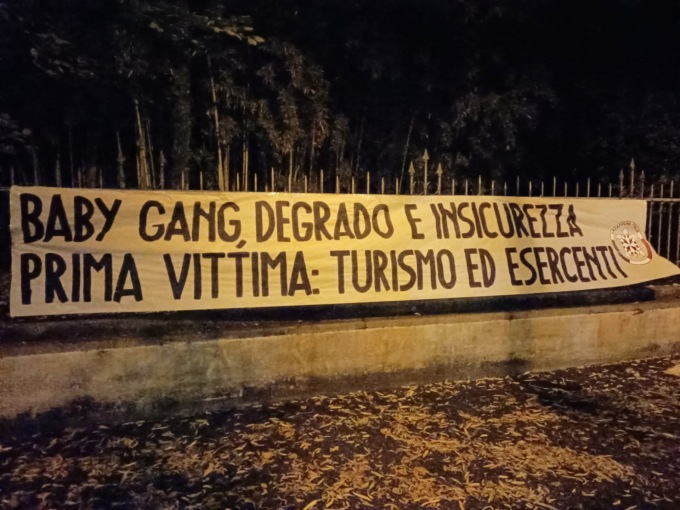 BABY GANG, DEGRADO E INSICUREZZA
PRIMA VITTIMA: TURISMO ED ESERCENTI